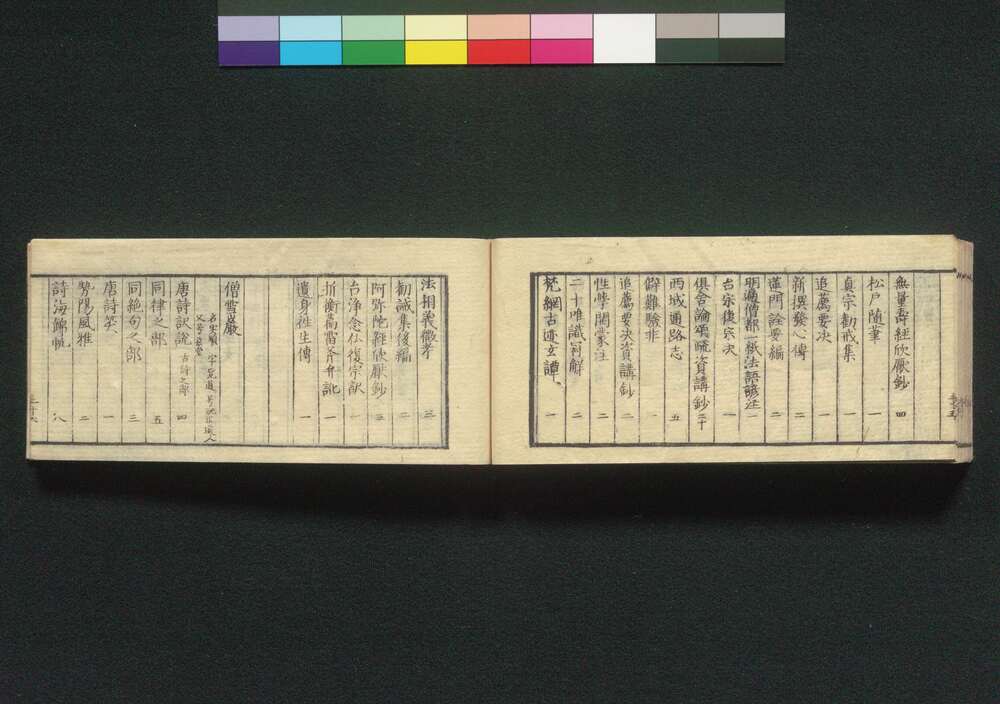 無量壽経欣厭鈔 四
松戸随筆 一
真宗勧戒集 一
追薦要決 一
新撰發心傳 二
蓮門詮要編 二
明遍僧都一紙法語諺注 一
台宗復宗決 一
倶舎論頌疏資講鈔 二十
西域通路志 五
僻難驗非 一
追薦要決資講鈔 一
性學開蒙注 二
二十唯識 解 二
梵網古迹玄譚 一
法相義徴考 三
勧誡集後編 二
阿弥陀経欣厭鈔 三
台浄念仏復宗訣 一
折衝篇雷斧弁訛 一
遺身往生傳 一
僧雪巌
唐詩訳説 古詩之部 四
同律之部 五
同絶句之部 三
唐詩笑 一
勢陽風雅 二
詩海錦帆 八